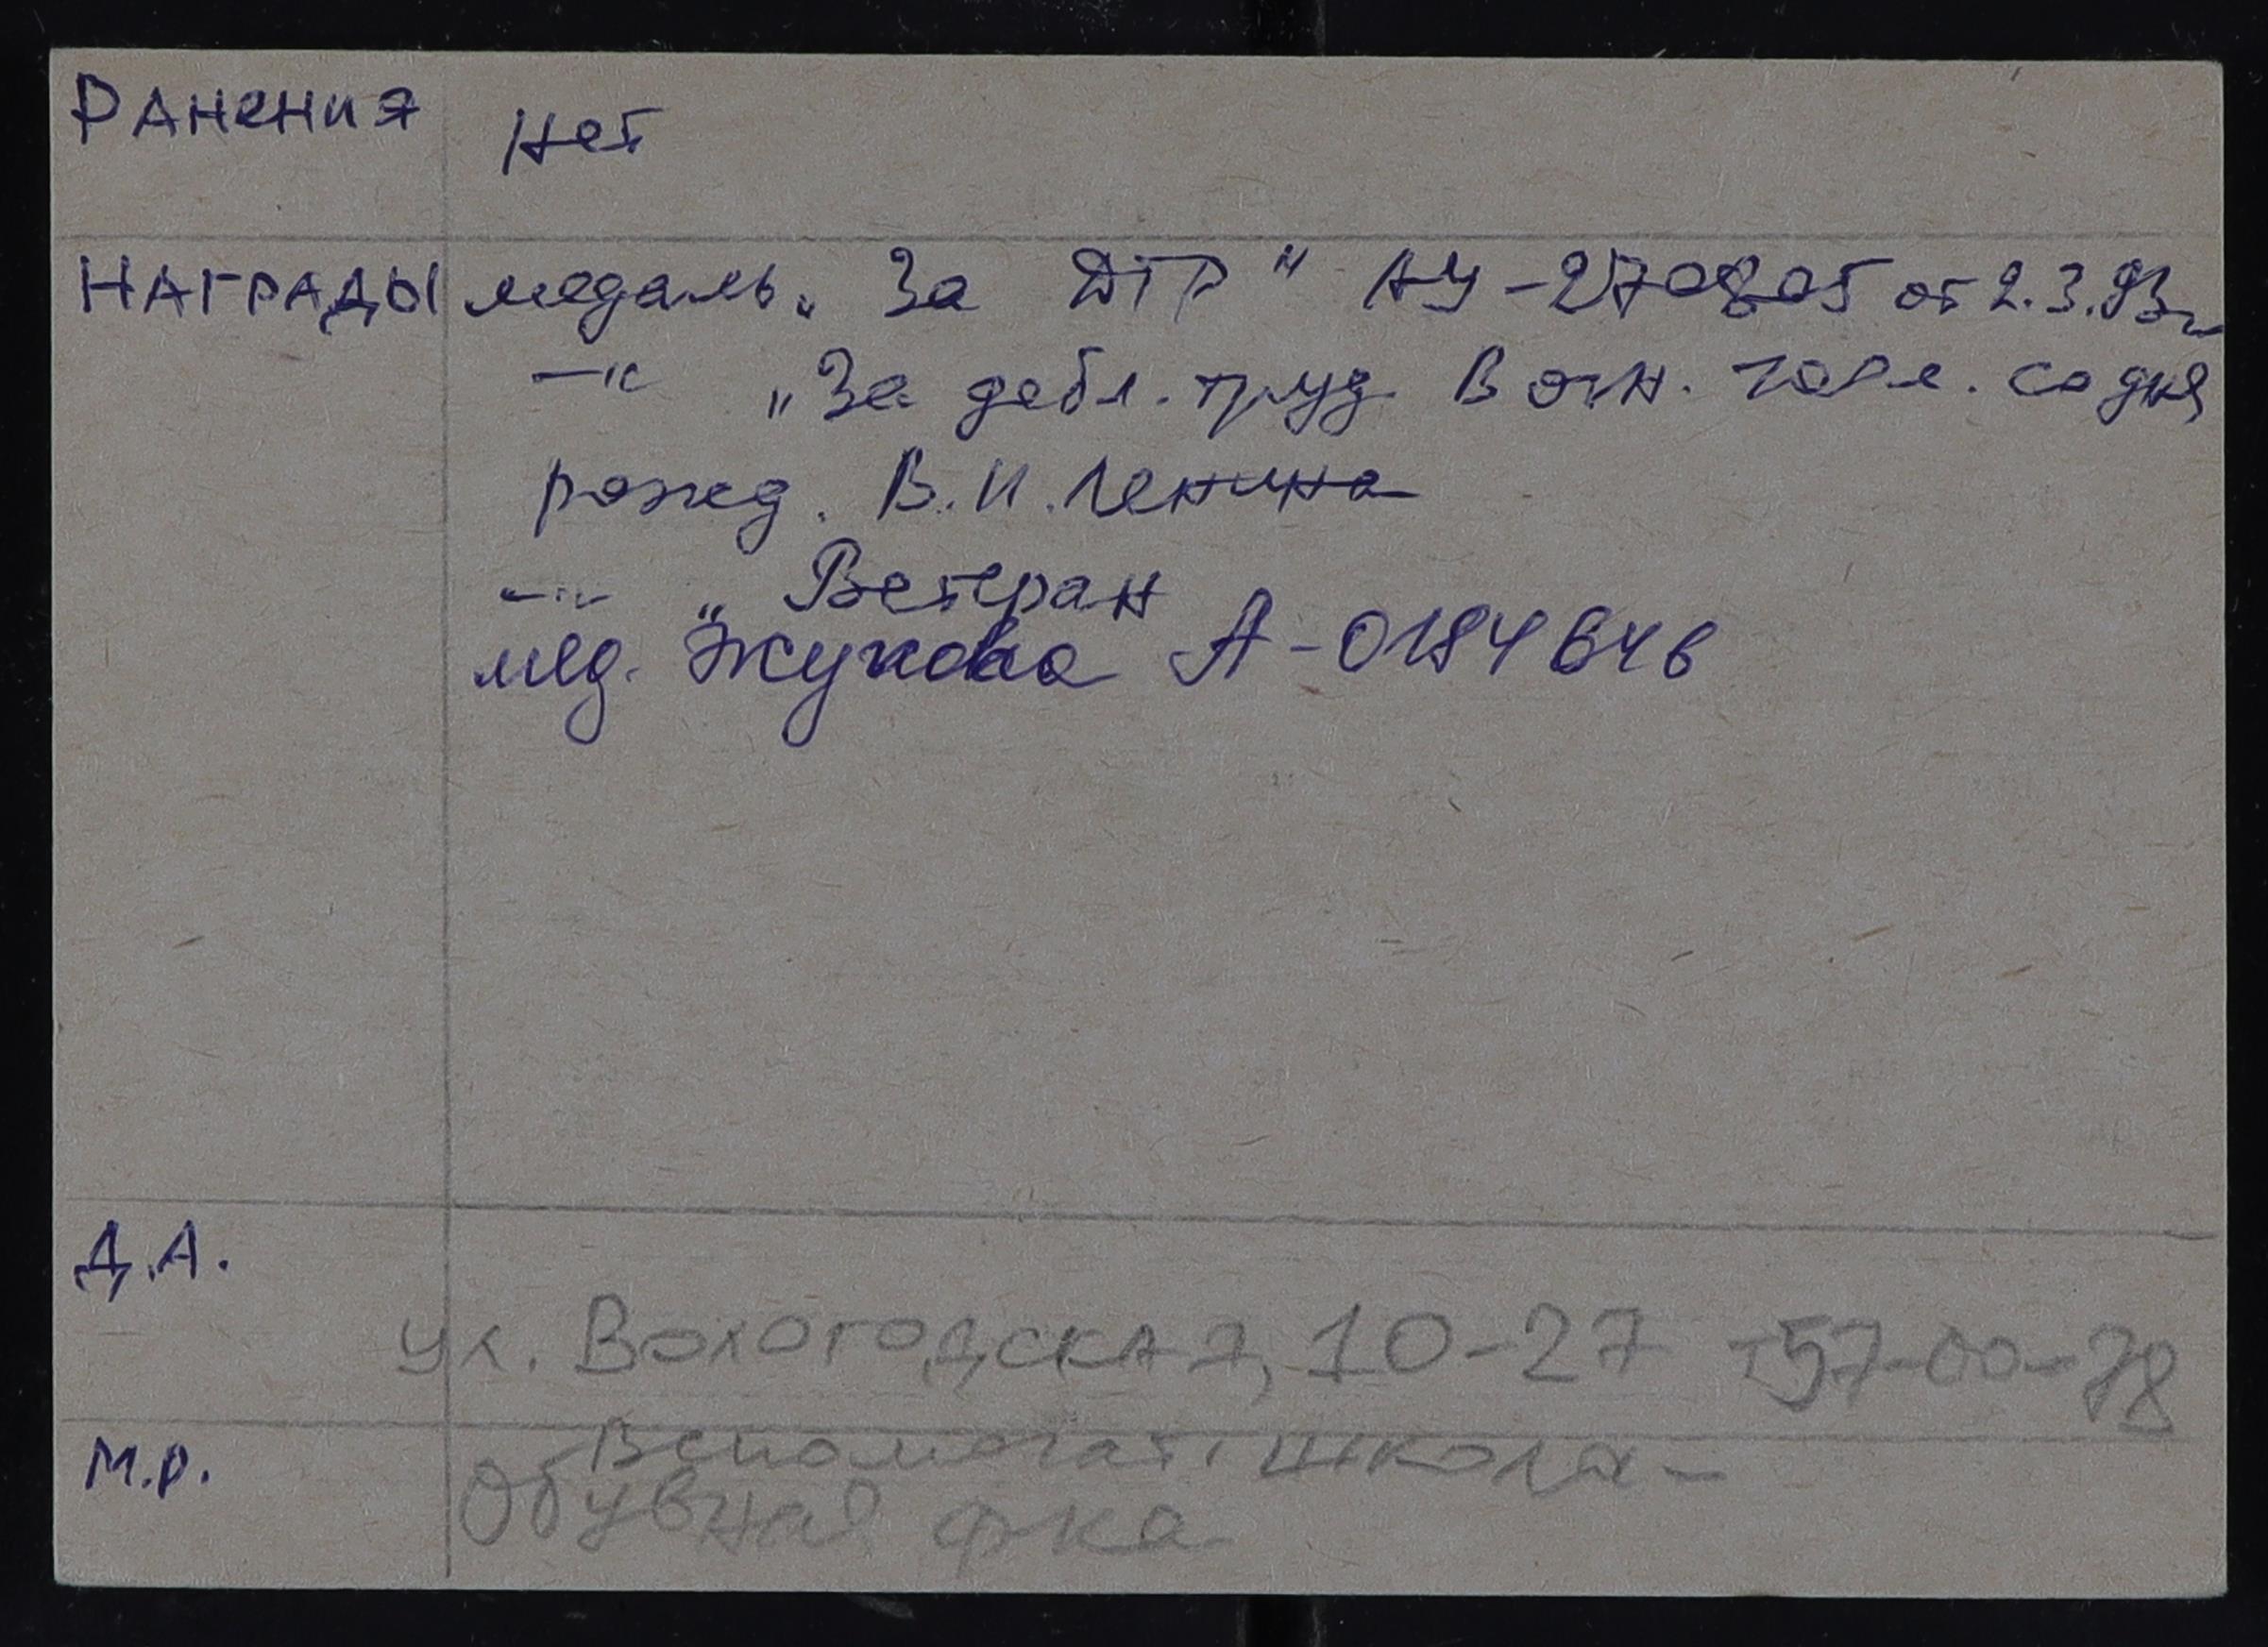 Ранения Нет
Награды медаль „За ДТР" АУ-2708205 от 2.3.93г
—"— „За добл. труд В озн. 100 л. со дня
рожд. В.И. Ленина
—"— „Ветеран
мед. Жукова А-0184646
Д.А.
ул. Вологодская, 10-27 т57-00-78
М.Р. Вспомогат. школа -
Обувная ф-ка